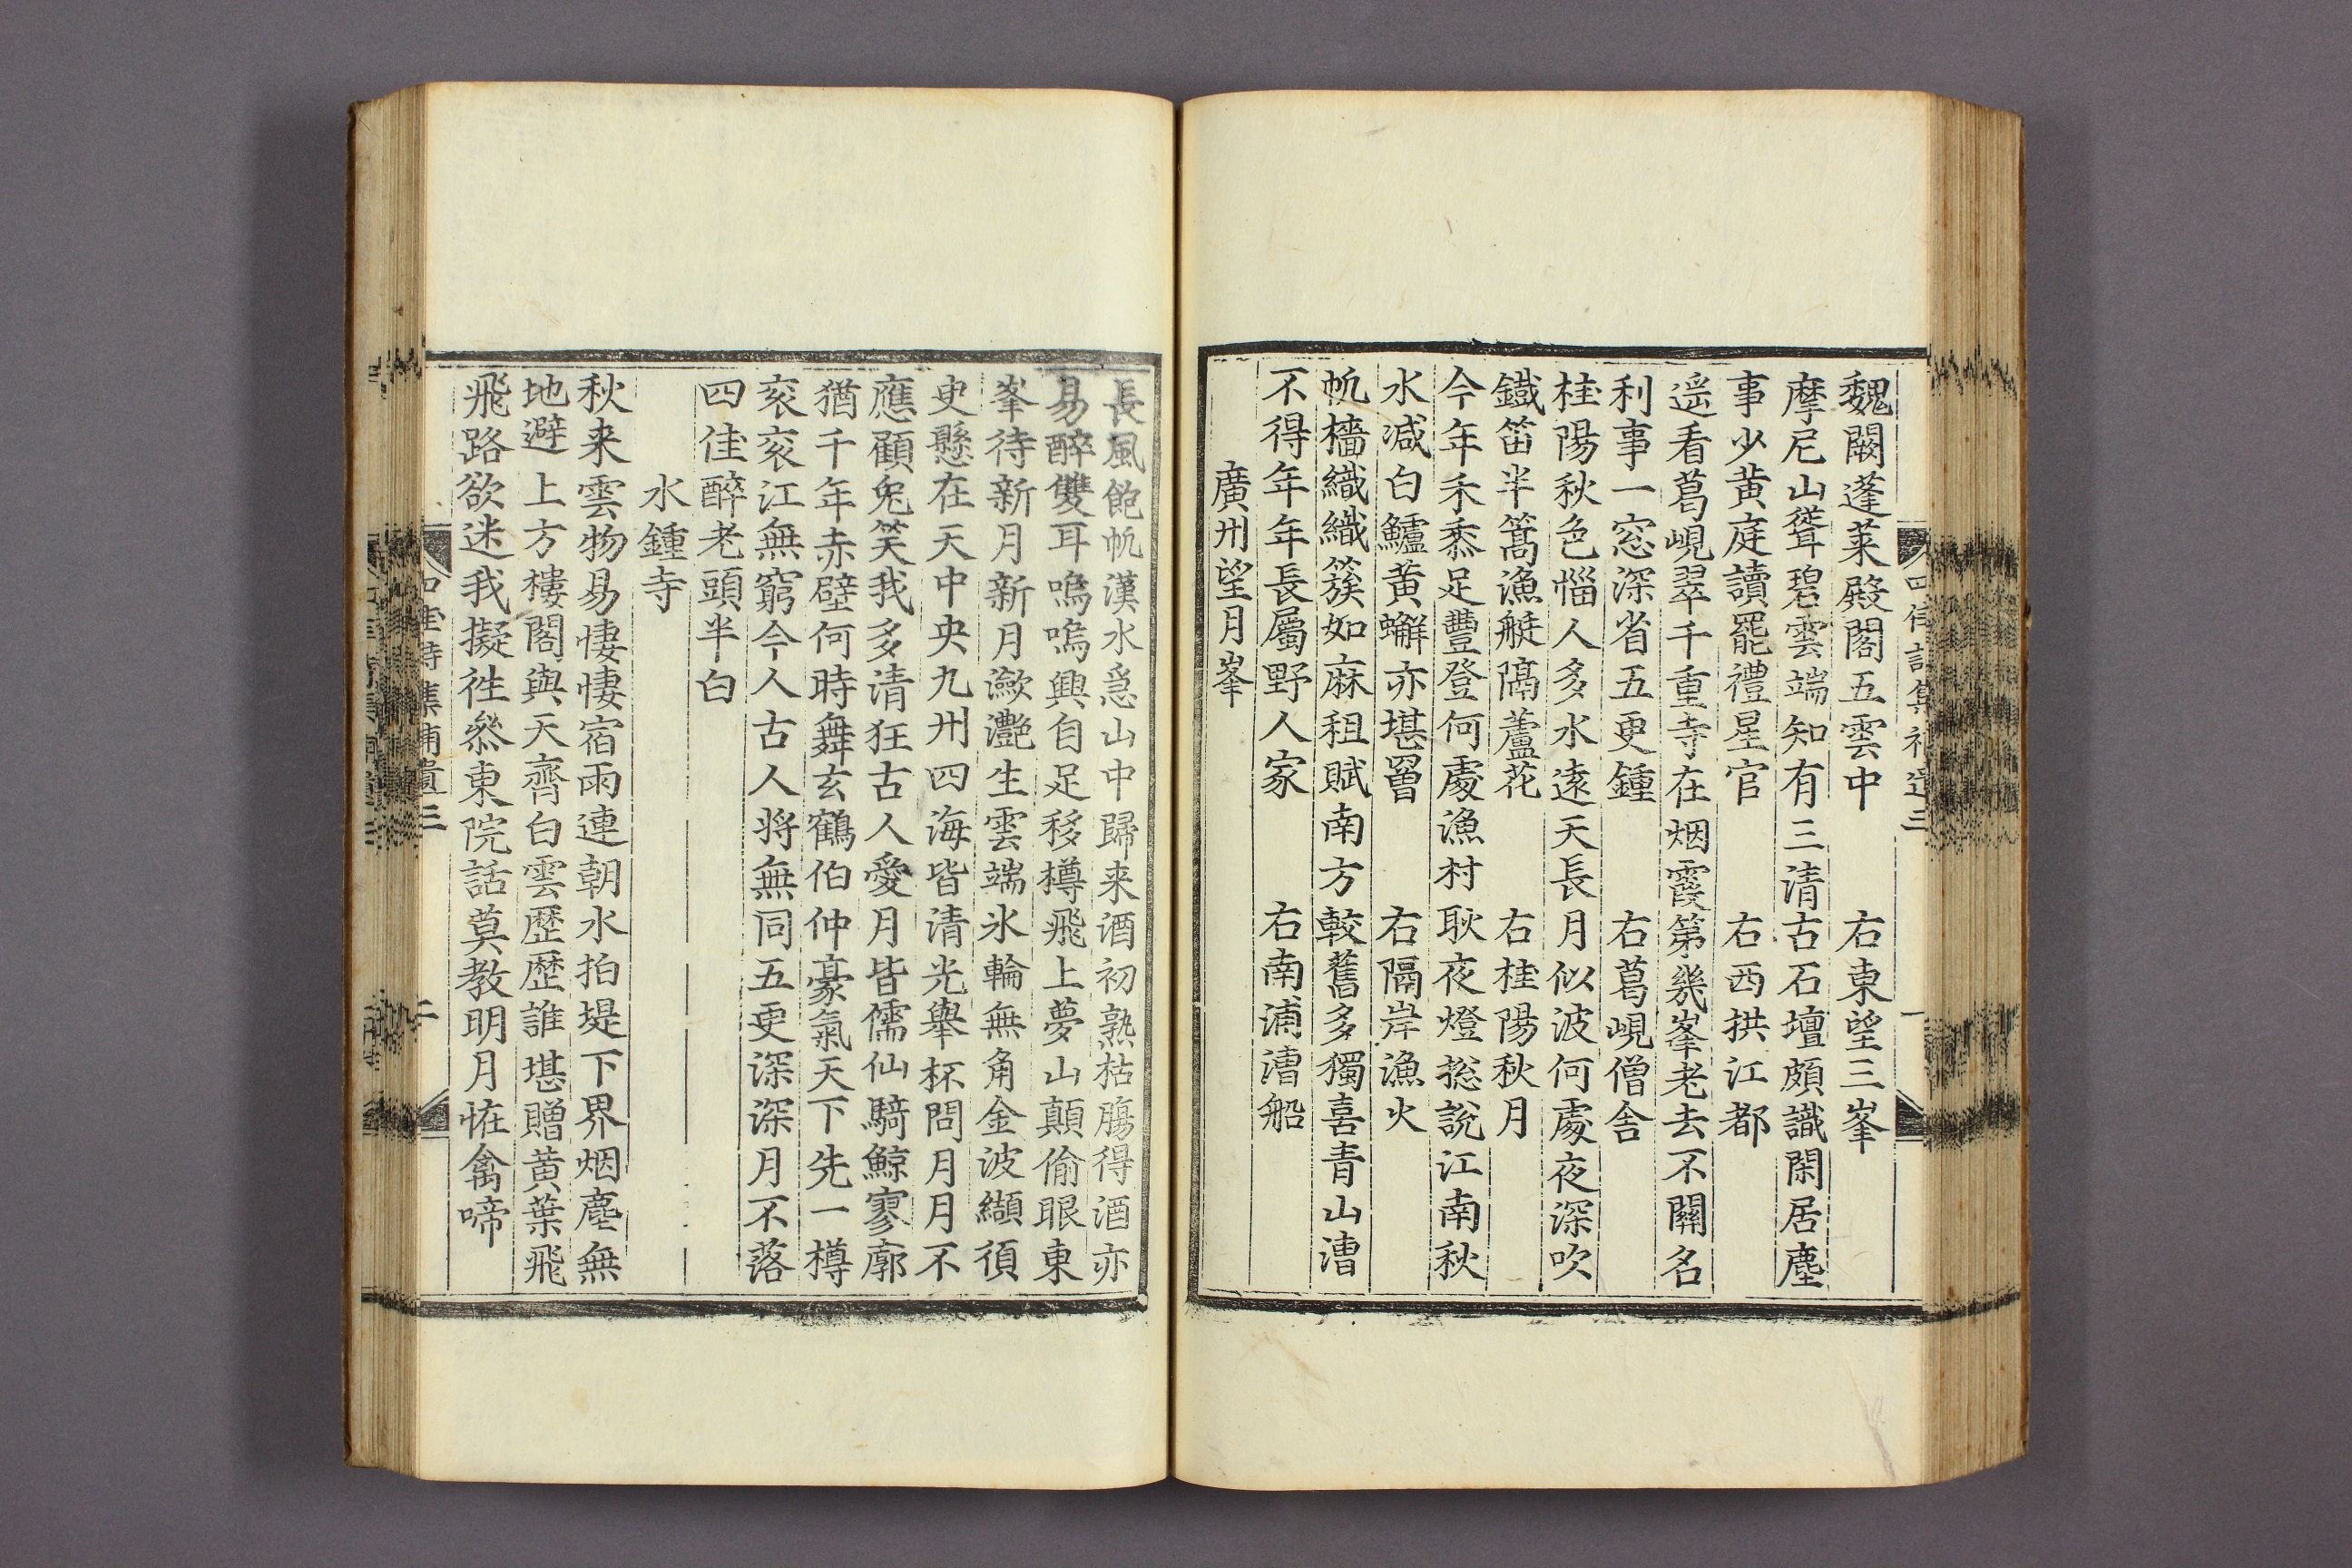 四佳詩集補遺三
一
魏闕蓬萊殿閣五雲中　右東望三峯
摩尼山聳碧雲端知有三清古石壇頗識閑居塵
事少黄庭讀罷禮星官　右西拱江都
遥看葛峴翠千重寺在烟霞第幾峯老去不關名
利事一窓深省五更鍾　右葛峴僧舍
桂陽秋色惱人多水遠天長月似波何處夜深吹
鐵笛半篙漁艇隔蘆花　右桂陽秋月
今年禾黍足豐登何處漁村耿夜燈捴說江南秋
水減白鱸黄蠏亦堪罾　右隔岸漁火
帆檣織織簇如麻租賦南方較舊多獨喜青山漕
不得年年長屬野人家　右南浦漕船
廣州望月峯
長風飽帆漢水急山中歸来酒初熟枯膓得酒亦
易醉雙耳嗚嗚興自足移樽飛上夢山巔偷眼東
峯待新月新月瀲灧生雲端氷輪無角金波纈須
㬰懸在天中央九州四海皆清光舉杯問月月不
應顧兔笑我多清狂古人愛月皆儒仙騎鯨寥廓
猶千年赤壁何時舞玄鶴伯仲豪氣天下先一樽
衮衮江無窮今人古人將無同五更深深月不落
四佳醉老頭半白
水鍾寺
秋来雲物易悽悽宿雨連朝水拍堤下界烟塵無
地避上方樓閣與天齊白雲歷歷誰堪贈黄葉飛
飛路欲迷我擬徃叅東院話莫教明月恠禽啼
四佳詩集補遺三
二